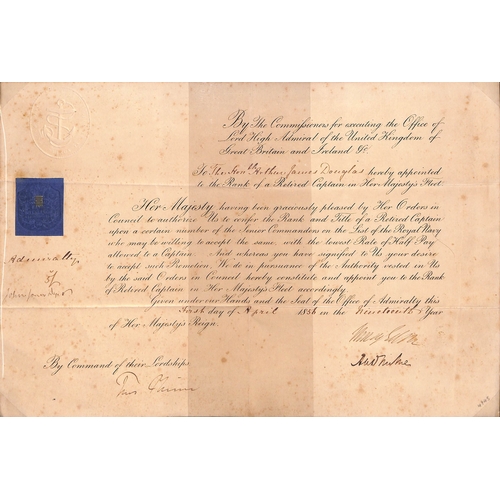 By The Commissioners for executing the Office of
Lord High Admiral of the United Kingdom of
Great Britain and Ireland &c
To The Honble Arthur James Douglas hereby appointed
to the Rank of a Retired Captain in Her Majesty's Fleet
Her Majesty having been graciously pleased by Her Orders in
Council to authorize Us to confer the Rank and Title of a Retired Captain
upon a certain number of the Senior Commanders on the List of the Royal Navy
who may be willing to accept the same, with the lowest Rate of Half Pay
allowed to a Captain. And whereas you have signified to Us your desire
to accept such Promotion. We do in pursuance of the Authority vested in Us
by the said Orders in Council hereby constitute and appoint you to the Rank
of Retired Captain in Her Majesty's Fleet accordingly.
Given under our Hands and the Seal of the Office of Admiralty this
First day of April 1856 in the Nineteenth Year
of Her Majesty's Reign.
By Command of their Lordships
Admiralty